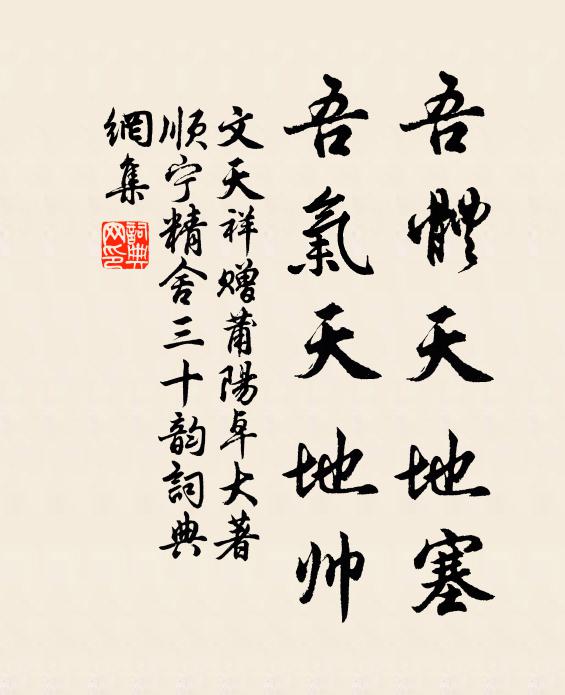 吾體天地塞
吾氣天地帅
文天祥赠莆陽卓大著
顺宁精舍三十韵詞典
網集
詞典
网印